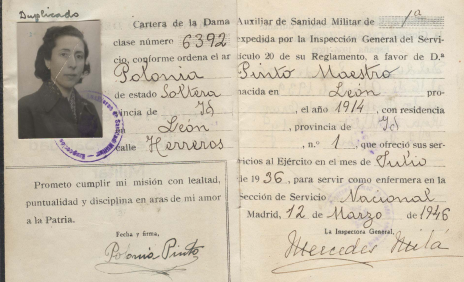 Duplicado
Cartera de la Dama Auxiliar de Sanidad Militar de 1ª
clase número 6392 expedida por la Inspección General del Servi-
cio, conforme ordena el artículo 20 de su Reglamento, a favor de D.ª
Polonia Pinto Maestro
de estado Soltera nacida en León pro-
vincia de Id , el año 1914, con residencia
en León , provincia de Id
calle Herreros , n.º 1 que ofreció sus ser-
vicios al Ejército en el mes de Julio
de 1936, para servir como enfermera en la
Sección de Servicio Nacional
Madrid, 12 de Marzo de 1946
La Inspectora General,
Mercedes Milá
Prometo cumplir mi misión con lealtad,
puntualidad y disciplina en aras de mi amor
a la Patria.
Fecha y firma,
Polonia Pinto